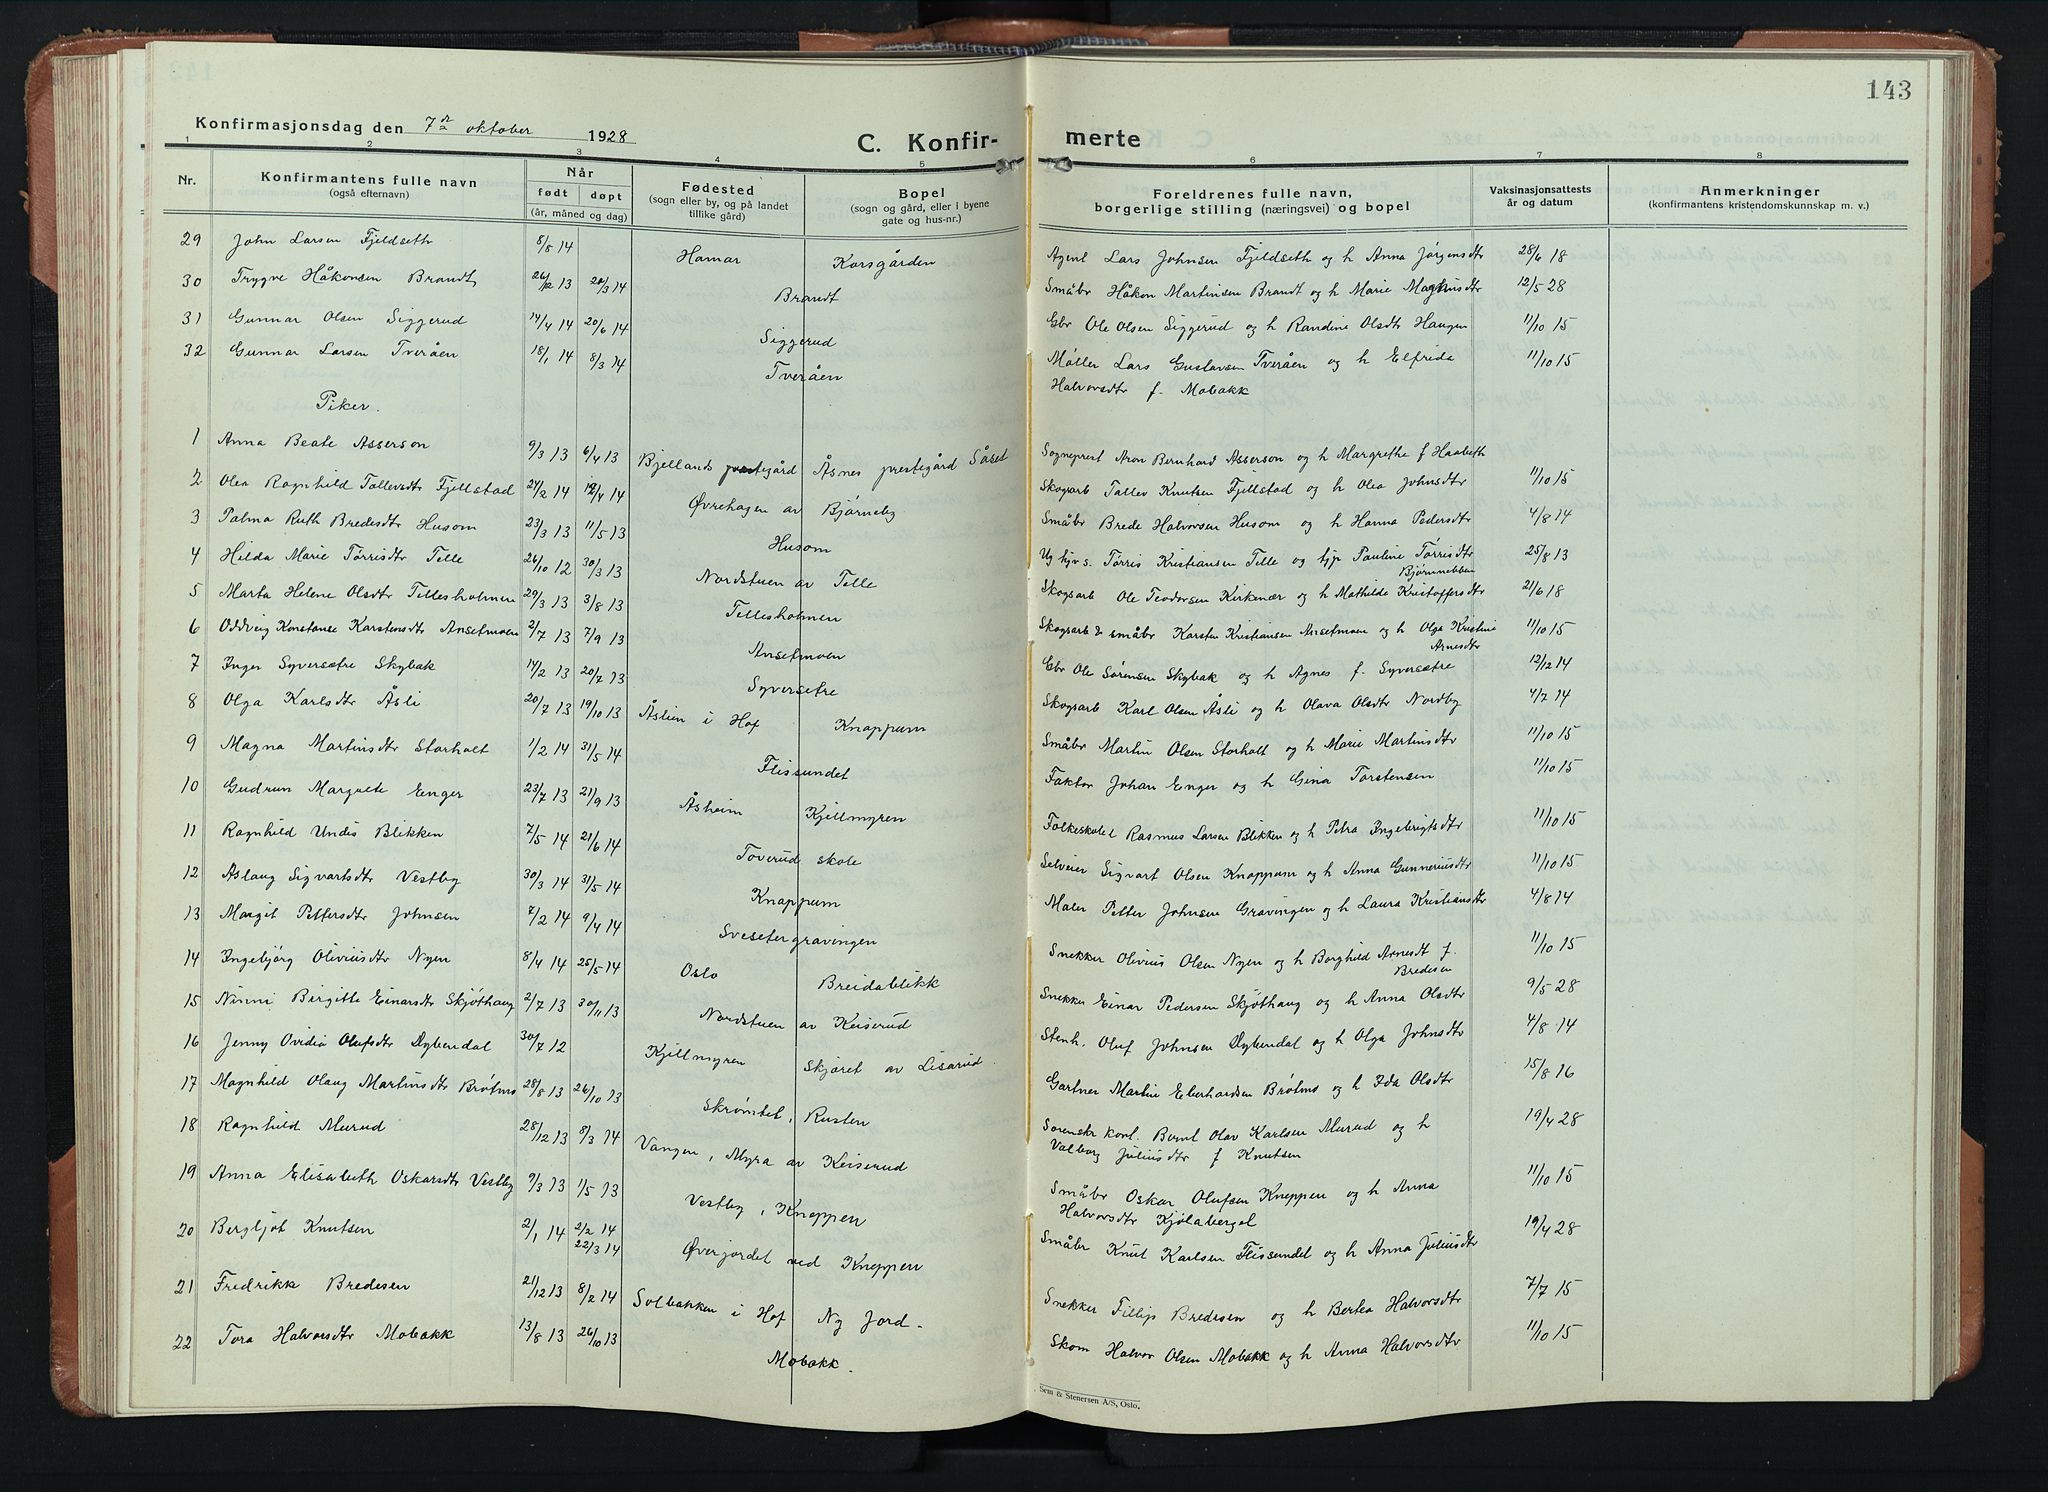 143
Konfirmasjonsdag den 7de oktober 1928
C. Konfir- merte
1 2 3 4 5 6 7 8
Nr. Konfirmantens fulle navn (også efternavn) Når født døpt (år, måned og dag) Fødested (sogn eller by, og på landet tillike gård) Bopel (sogn og gård, eller i byene gate og hus-nr.) Foreldrenes fulle navn, borgerlige stilling (næringsvei) og bopel Vaksinasjonsattests år og datum Anmerkninger (konfirmantens kristendomskunnskap m. v.)
29 John Larsen Fjeldseth 8/8 14 Hamar Korsgården Agent Lars Johnsen Fjeldseth og h Anna Jørgensdtr 28/6 18
30 Trygve Håkonsen Brandt 26/12 13 20/3 14 Brandt Småbr Håkon Martinsen Brandt og h Marie Magnusdtr 12/5 28
31 Gunnar Olsen Siggerud 14/4 14 20/6 14 Siggerud Gbr Ole Olsen Siggerud og h Randine Olsdtr Haugen 11/10 15
32 Gunnar Larsen Tveråen 18/1 14 8/3 14 Tveråen Møller Lars Gustavsen Tveråen og h Elfrida
Halvorsdtr f. Mobakk 11/10 15
Piker.
1 Anna Beate Asserson 9/3 13 6/4 13 Bjellands prestegård Åsnes prestegård Sogneprest Aron Bernhard Asserson og h Margrethe f Haabeth
2 Olea Ragnhild Tollevsdtr Fjellstad 24/2 14 12/4 14 Øvrehagen av Bjørneby Skogsarb Tallev Knutsen Fjellstad og h Olea Johnsdtr 11/10 15
3 Palma Ruth Bredesdtr Husom 23/3 13 11/5 13 Husom Småbr Brede Halvorsen Husom og h Hanna Pedersdtr 4/8 14
4 Hilda Marie Tørrisdtr Telle 26/10 12 30/3 13 Nordstuen av Telle Ug hjv s. Tørris Kristiansen Telle og hjp Pauline Tørrisdtr
Bjørnnebben 25/8 13
5 Marta Helene Olsdtr Tellesholmen 29/3 13 3/8 13 Tellesholmen Skogsarb Ole Teodorsen Kirkenær og h Mathilde Kristoffersdtr 21/6 18
6 Oddveig Konstanse Karstensdtr Ansetmoen 2/7 13 7/9 13 Ansetmoen Skogsarb & småbr Karsten Kristiansen Ansetmoen og h Olga Kristine
Arnesdtr 11/10 15
7 Inger Syversætre Skybak 14/2 13 20/7 13 Syversetre Gbr Ole Sørensen Skybak og h Agnes f. Syversætre 12/12 14
8 Olga Karlsdtr Åsli 20/7 13 19/10 13 Åslien i Hof Knappum Skogsarb Karl Olsen Åsli og h Olava Olsdtr Nordby 4/7 14
9 Magna Martinsdtr Storholt 1/2 14 31/5 14 Flissundet Småbr Martin Olsen Storholt og h Marie Martinsdtr 11/10 15
10 Gudrun Margrete Enger 23/7 13 21/9 13 Åsheim Kjellmyren Faktor Johan Enger og h Gina Torstensen 11/10 15
11 Ragnhild Undis Blikken 7/5 14 21/6 14 Toverud skole Folkeskolel Rasmus Larsen Blikken og h Petra Ingebrigtsdtr 11/10 15
12 Åslaug Sigvartsdtr Vestby 30/3 14 31/5 14 Knappum Selveier Sigvart Olsen Knappum og h Anna Gunneriusdtr 11/10 15
13 Margit Pettersdtr Johnsen 7/2 14 9/4 14 Svesetergravingen Maler Petter Johnsen Gravingen og h Laura Kristiansdtr 4/8 14
14 Ingebjørg Oliviusdtr Nyen 8/4 14 25/5 14 Oslo Breidablikk Snekker Olivius Olsen Nyen og h Borghild Arnesdt f.
Bredesen 11/10 15
15 Ninni Birgitte Einarsdtr Skjøthaug 2/7 13 30/11 13 Nordstuen av Keiserud Snekker Einar Pedersen Skjøthaug og h Anna Olsdtr 9/5 28
16 Jenny Ovidia Olufsdtr Dybendal 30/7 12 Kjellmyren Skjøret av Lisarud Stenh. Oluf Johnsen Dybendal og h Olga Johnsdtr 4/8 14
17 Magnhild Olaug Martinsdtr Brøtmo 28/8 13 26/10 13 Skrømtet, Rusten Gartner Martin Eberhardsen Brøtmo og h Ida Olsdtr 15/8 16
18 Ragnhild Murud 28/12 13 8/3 14 Vangen, Myra av Keiserud Sorenskr kont. Bernt Olav Karlsen Murud og h
Valborg Juliusdtr f Knutsen 19/4 28
19 Anna Elisabeth Oskarsdtr Vestby 9/3 13 1/5 13 Vestby, Kneppen Småbr Oskar Olufsen Kneppen og h Anna
Halvorsdtr Kjølaberget 11/10 15
20 Bergljot Knutsen 2/1 14 2/2 14
22/3 14 Øverjordet ved Kneppen Småbr Knut Karlsen Flissundet og h Anna Juliusdtr 19/4 28
21 Fredrikk Bredesen 21/12 13 8/2 14 Solbakken i Hof Ny Jord. Snekker Fillip Bredesen og h Bertea Halvorsdtr 7/7 15
22 Tora Halvorsdtr Mobakk 13/8 13 26/10 13 Mobakk. Skom Halvor Olsen Mobakk og h Anna Halvorsdtr 11/10 15
Sem & Stenersen A/S, Oslo.